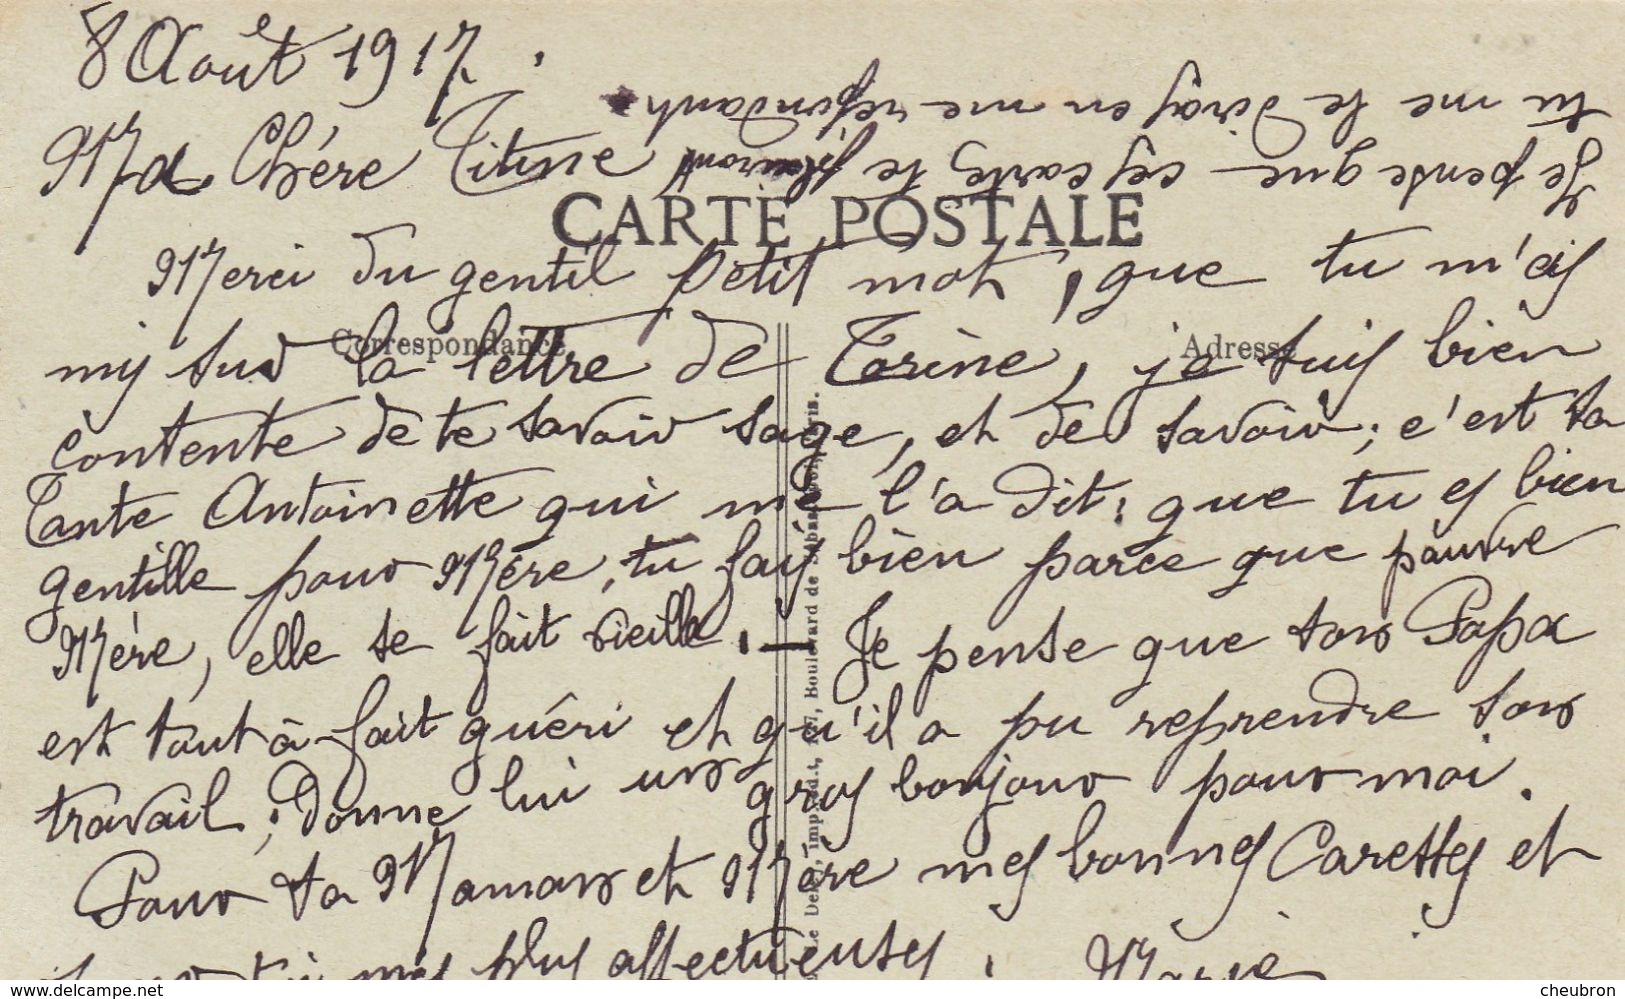 8 Août 1917.
Ma Chère Titine
Je pense que ces cartes te plairont
tu me le diras en me répondant
CARTE POSTALE
Merci du gentil petit mot, que tu m'as
Correspondance
Adresse
mis sur la lettre de Torine, je suis bien
contente de te savoir sage, et de savoir; c'est ta
Tante Antoinette qui me l'a dit; que tu es bien
gentille pour Mère, tu fais bien parce que pauvre
Mère, elle se fait vieille. — Je pense que ton Papa
est tout à fait guéri et qu'il a pu reprendre son
travail; donne lui un gros bonjour pour moi.
Pour ta Maman et Mère mes bonnes Caresses et
toi mes plus affectueuses. Marie
Le Deley, imp.-édit., 127, Boulevard de Sébastopol, Paris.
www.delcampe.net
cheubron